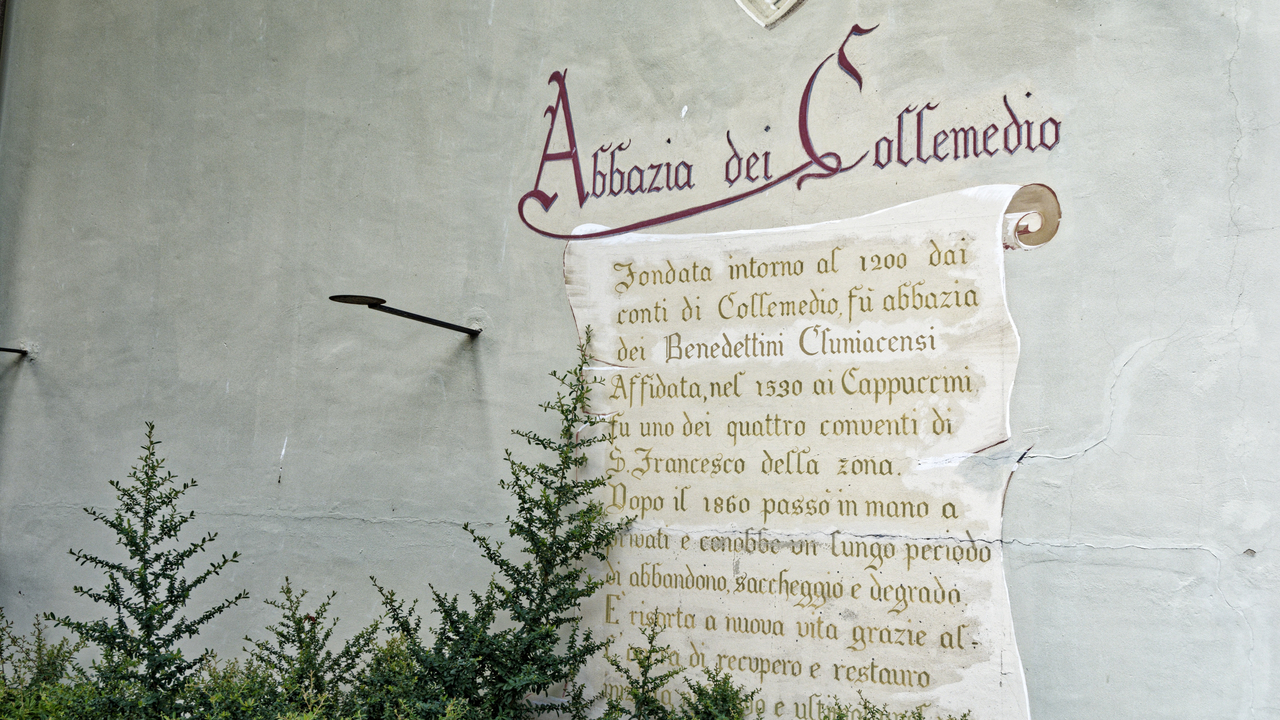 Abbazia dei Collemedio
Fondata intorno al 1200 dai
conti di Collemedio, fù abbazia
dei Benedettini Cluniacensi
Affidata, nel 1530 ai Cappuccini,
fu uno dei quattro conventi di
S. Francesco della zona.
Dopo il 1860 passò in mano a
privati e conobbe un lungo periodo
di abbandono, saccheggio e degrado.
E' risorta a nuova vita grazie al-
di recupero e restauro
e